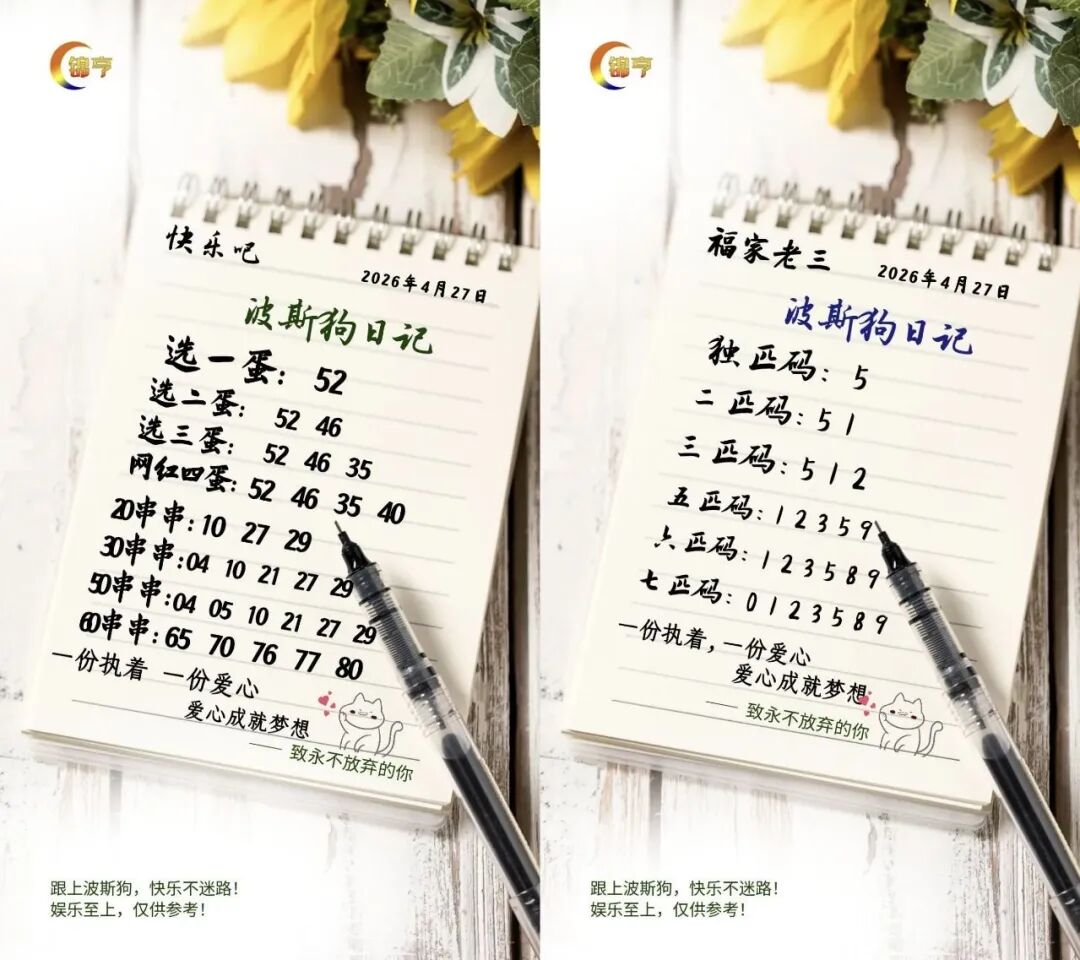 锦亨
快乐吧
2026年4月27日
波斯狗日记
选一蛋：52
选二蛋：52 46
选三蛋：52 46 35
网红四蛋：52 46 35 40
20串串：10 27 29
30串串：04 10 21 27 29
50串串：04 05 10 21 27 29
60串串：65 70 76 77 80
一份执着 一份爱心
爱心成就梦想
—— 致永不放弃的你
跟上波斯狗，快乐不迷路！
娱乐至上，仅供参考！
锦亨
福家老三
2026年4月27日
波斯狗日记
独匹码：5
二匹码：5 1
三匹码：5 1 2
五匹码：1 2 3 5 9
六匹码：1 2 3 5 8 9
七匹码：0 1 2 3 5 8 9
一份执着，一份爱心
爱心成就梦想
—— 致永不放弃的你
跟上波斯狗，快乐不迷路！
娱乐至上，仅供参考！